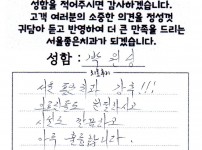 성함을 적어주시면 감사하겠습니다.
고객 여러분의 소중한 의견을 정성껏
귀담아 듣고 반영하여 더 큰 만족을 드리는
서울좋은치과가 되겠습니다.
성함 : 박
서울 좋은치과 강추!!!
시설도
아주 훌륭합니다.